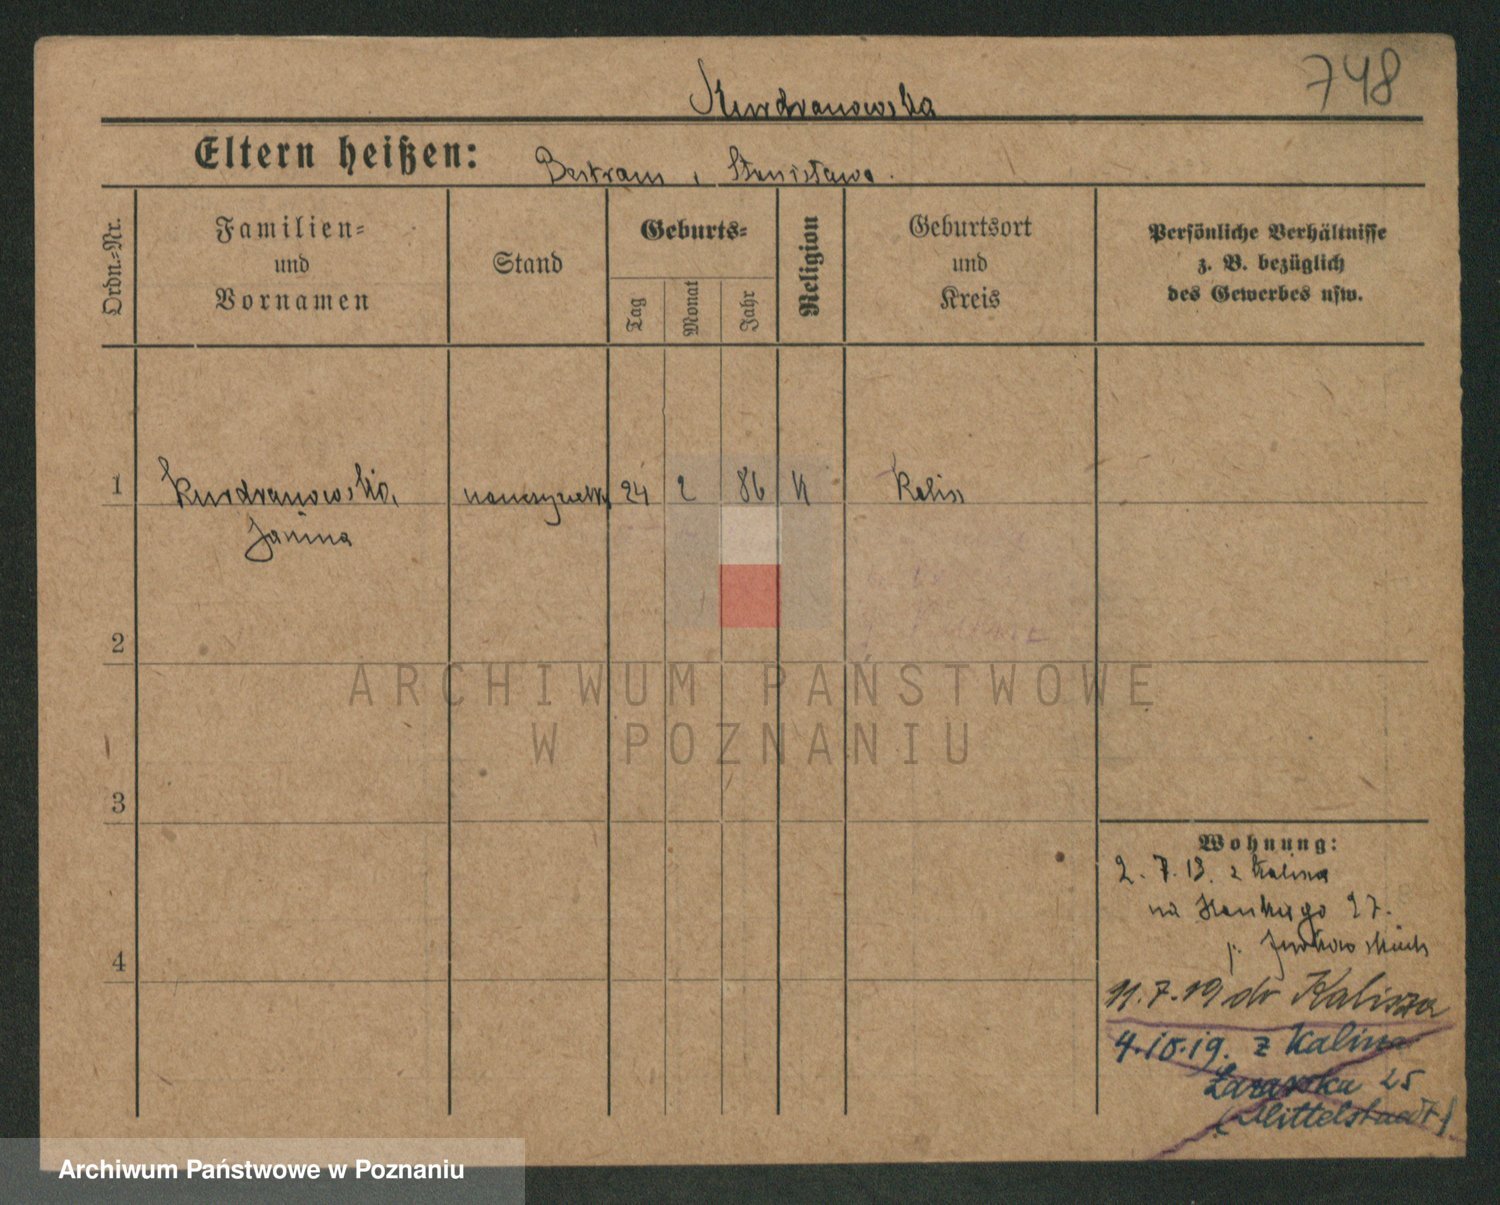 748
Kurdwanowska
Eltern heißen: Bertram i Stanisława.
Ordn.-Nr.
Familien- und Vornamen
Stand
Geburts-
Tag
Monat
Jahr
Religion
Geburtsort und Kreis
Persönliche Verhältnisse
z. B. bezüglich
des Gewerbes usw.
1 Kurdwanowska, nauczycielka 24 2 86 K Kalisz
Janina
2
ARCHIWUM PAŃSTWOWE
W POZNANIU
3
Wohnung:
2. 7. 19. z Kalisza
na 27.
p.
4
11.7.19 do Kalisza
4.10.19. z Kalisza
Łazarska 25
(Mittelstadt)
Archiwum Państwowe w Poznaniu